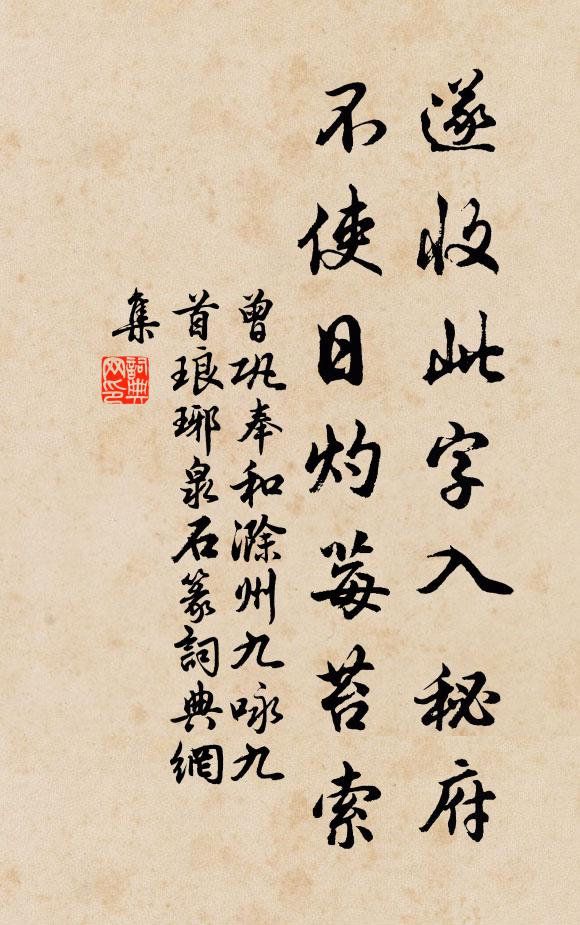 遂收此字入秘府
不使日灼莓苔索
曾巩奉和滁州九咏九
首琅琊泉石篆詞典網
集
詞典
网印